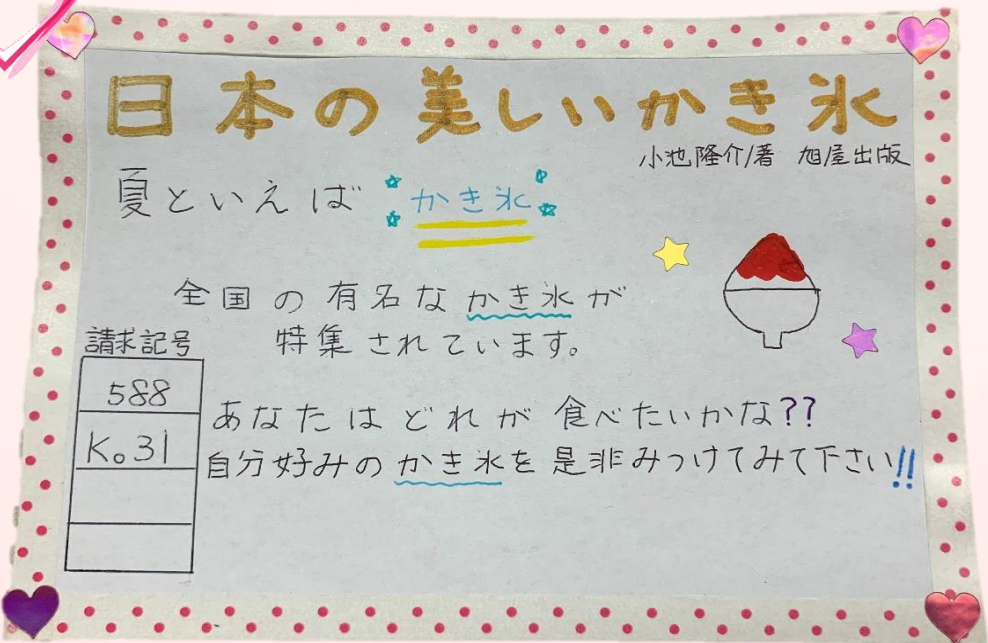 日本の美しいかき氷
小池隆介/著 旭屋出版
夏といえば かき氷
全国の有名なかき氷が
特集されています。
請求記号
588
Ko31
あなたはどれが食べたいかな??
自分好みのかき氷を是非みつけてみて下さい!!